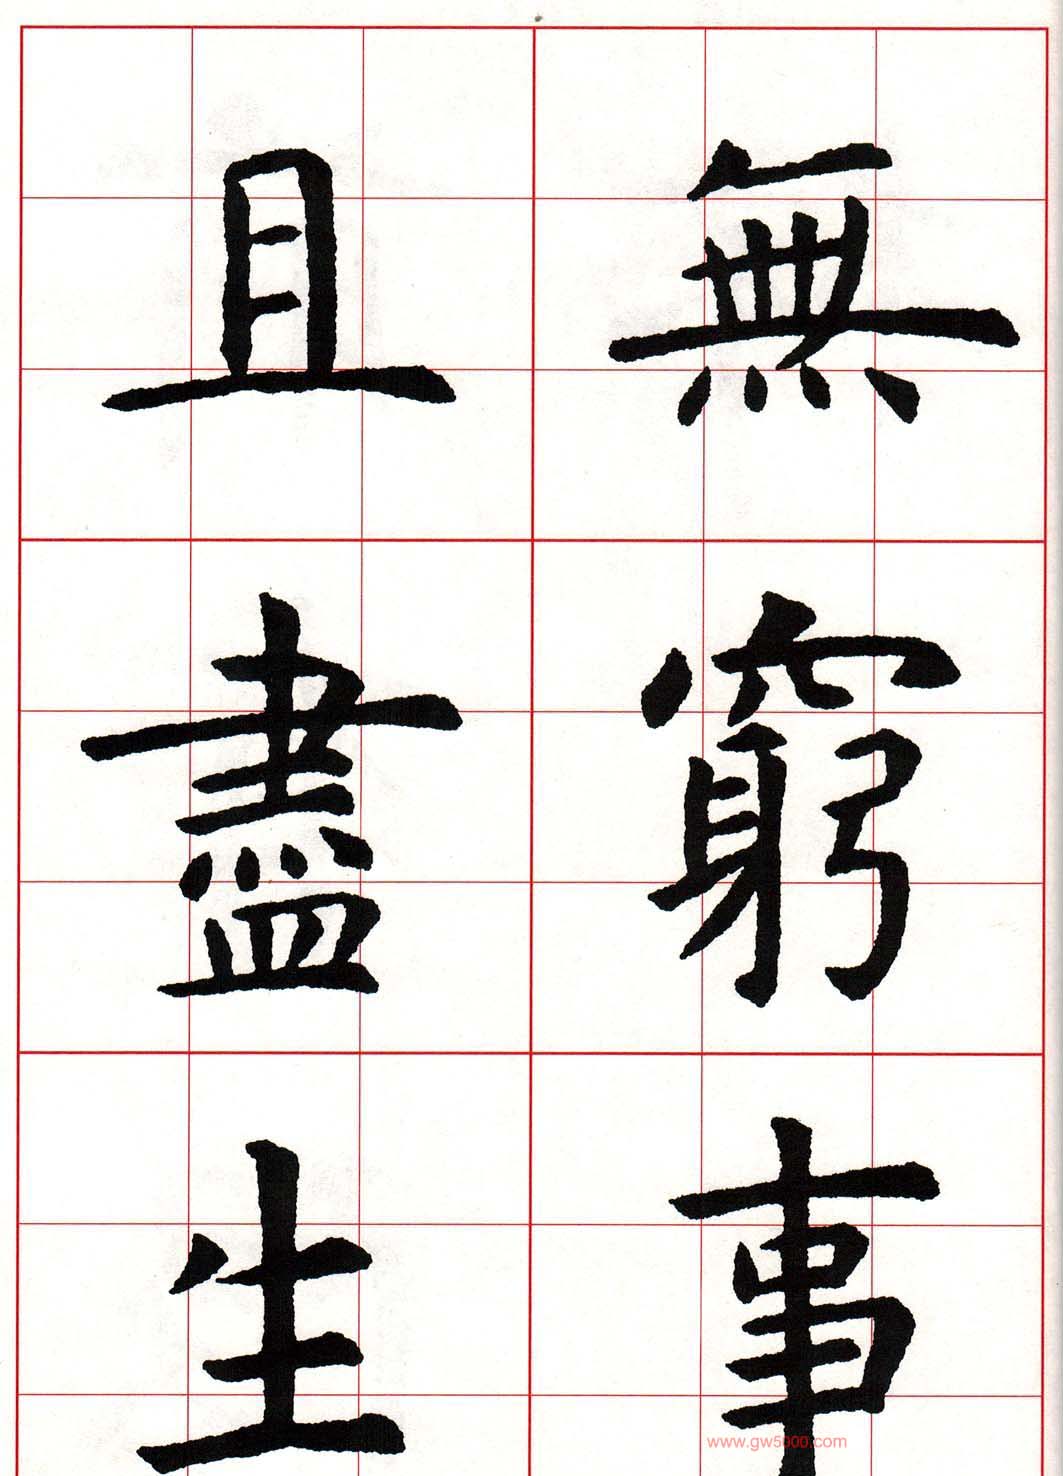 無窮事
且盡生
www.gw5000.com